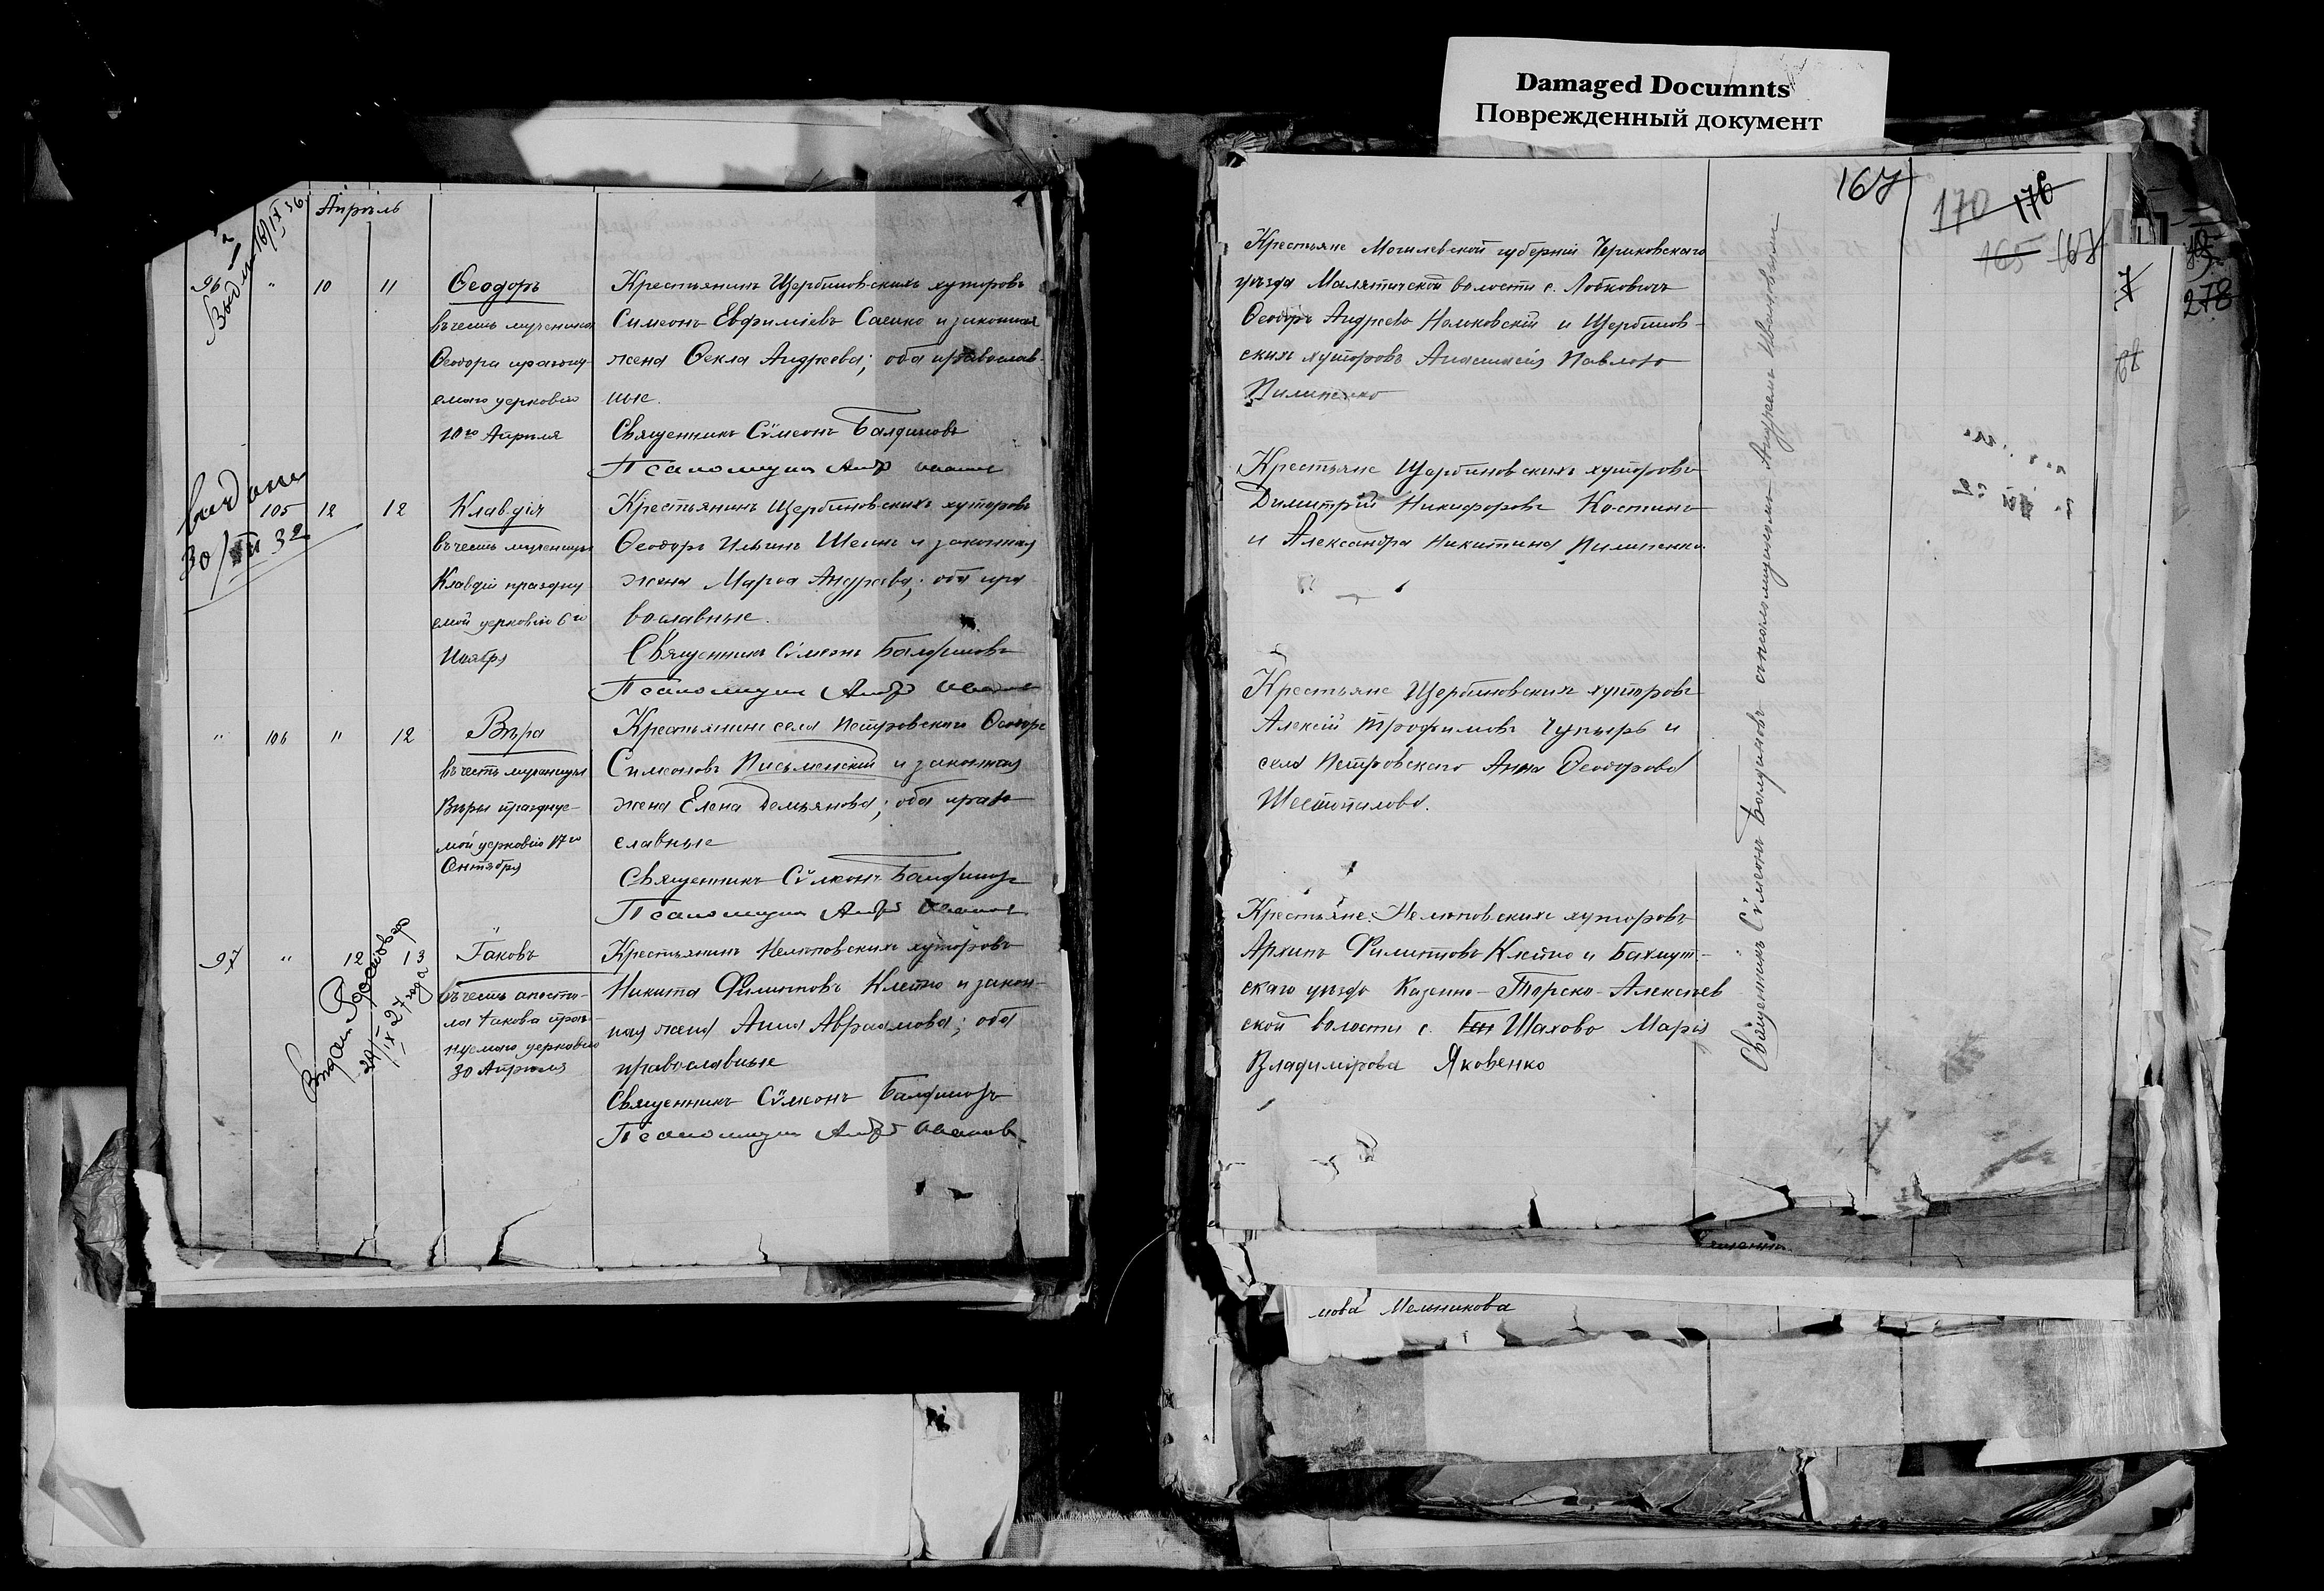 Damaged Documnts
Поврежденный документ
Апрѣль
96 " 10 11 Ѳеодоръ
въ честь мученика
Ѳеодора празну-
емаго церковію
10го Апрѣля
Крестьянинъ Щербиновскихъ хуторовъ
Симеонъ Евфиміевъ Саенко и законная
жена Ѳекла Андреева; оба православ-
ные.
Священникъ Сѵмеонъ Балдиновъ
Псаломщикъ Андр Иванов
выдана
30/VII 32
105 12 12 Клавдія
въ честь мученицы
Клавдіи праздну
емой церковію 6го
Ноября
Крестьянинъ Щербиновскихъ хуторовъ
Ѳеодоръ Ильинъ Шеинъ и законная
жена Марѳа Андреева; оба пра
вославные.
Священникъ Сѵмеонъ Балдиновъ
Псаломщикъ Андр Иванов
" 106 " 12 Вѣра
въ честь мученицы
Вѣры празднуе-
мой церковію 17го
Сентября
Крестьянинъ села Петровскаго Ѳеодоръ
Симеоновъ Письменскій и законная
жена Елена Демьянова; оба право
славные
Священникъ Сѵмеонъ Балдиновъ
Псаломщикъ Андр Иванов
97 " 12 13 Іаковъ
въ честь апосто-
ла Іакова празд-
нуемаго церковію
30 Апрѣля
Крестьянинъ Нелѣповскихъ хуторовъ
Никита Филипповъ Клейно и закон-
ная жена Анна Авраамова; оба
православные
Священникъ Сѵмеонъ Балдиновъ
Псаломщикъ Андр Иванов
24/IX 27 года
167
170 176
165 167
278
Крестьяне Могилевской губерніи Чериковскаго
уѣзда Малятичской волости с. Лобковичъ
Ѳеодоръ Андреевъ Наликовскій и Щербинов-
скихъ хуторовъ Анастасія Павлова
Пилипенко
Крестьяне Щербиновскихъ хуторовъ
Димитрій Никифоровъ Костинъ
и Александра Никитина Пилипенко.
Крестьяне Щербиновскихъ хуторовъ
Алексій Трофимовъ Чупырь и
села Петровскаго Анна Ѳеодорова
Шестопалова.
Крестьяне Нелѣповскихъ хуторовъ
Архипъ Филипповъ Клейно и Бахмут-
скаго уѣзда Казенно-Торско-Алексѣев
ской волости с. Шахово Марія
Владимірова Яковенко
Священникъ Сѵмеонъ Балдиновъ съ псаломщикомъ Андреемъ Ивановымъ
мова Мельникова